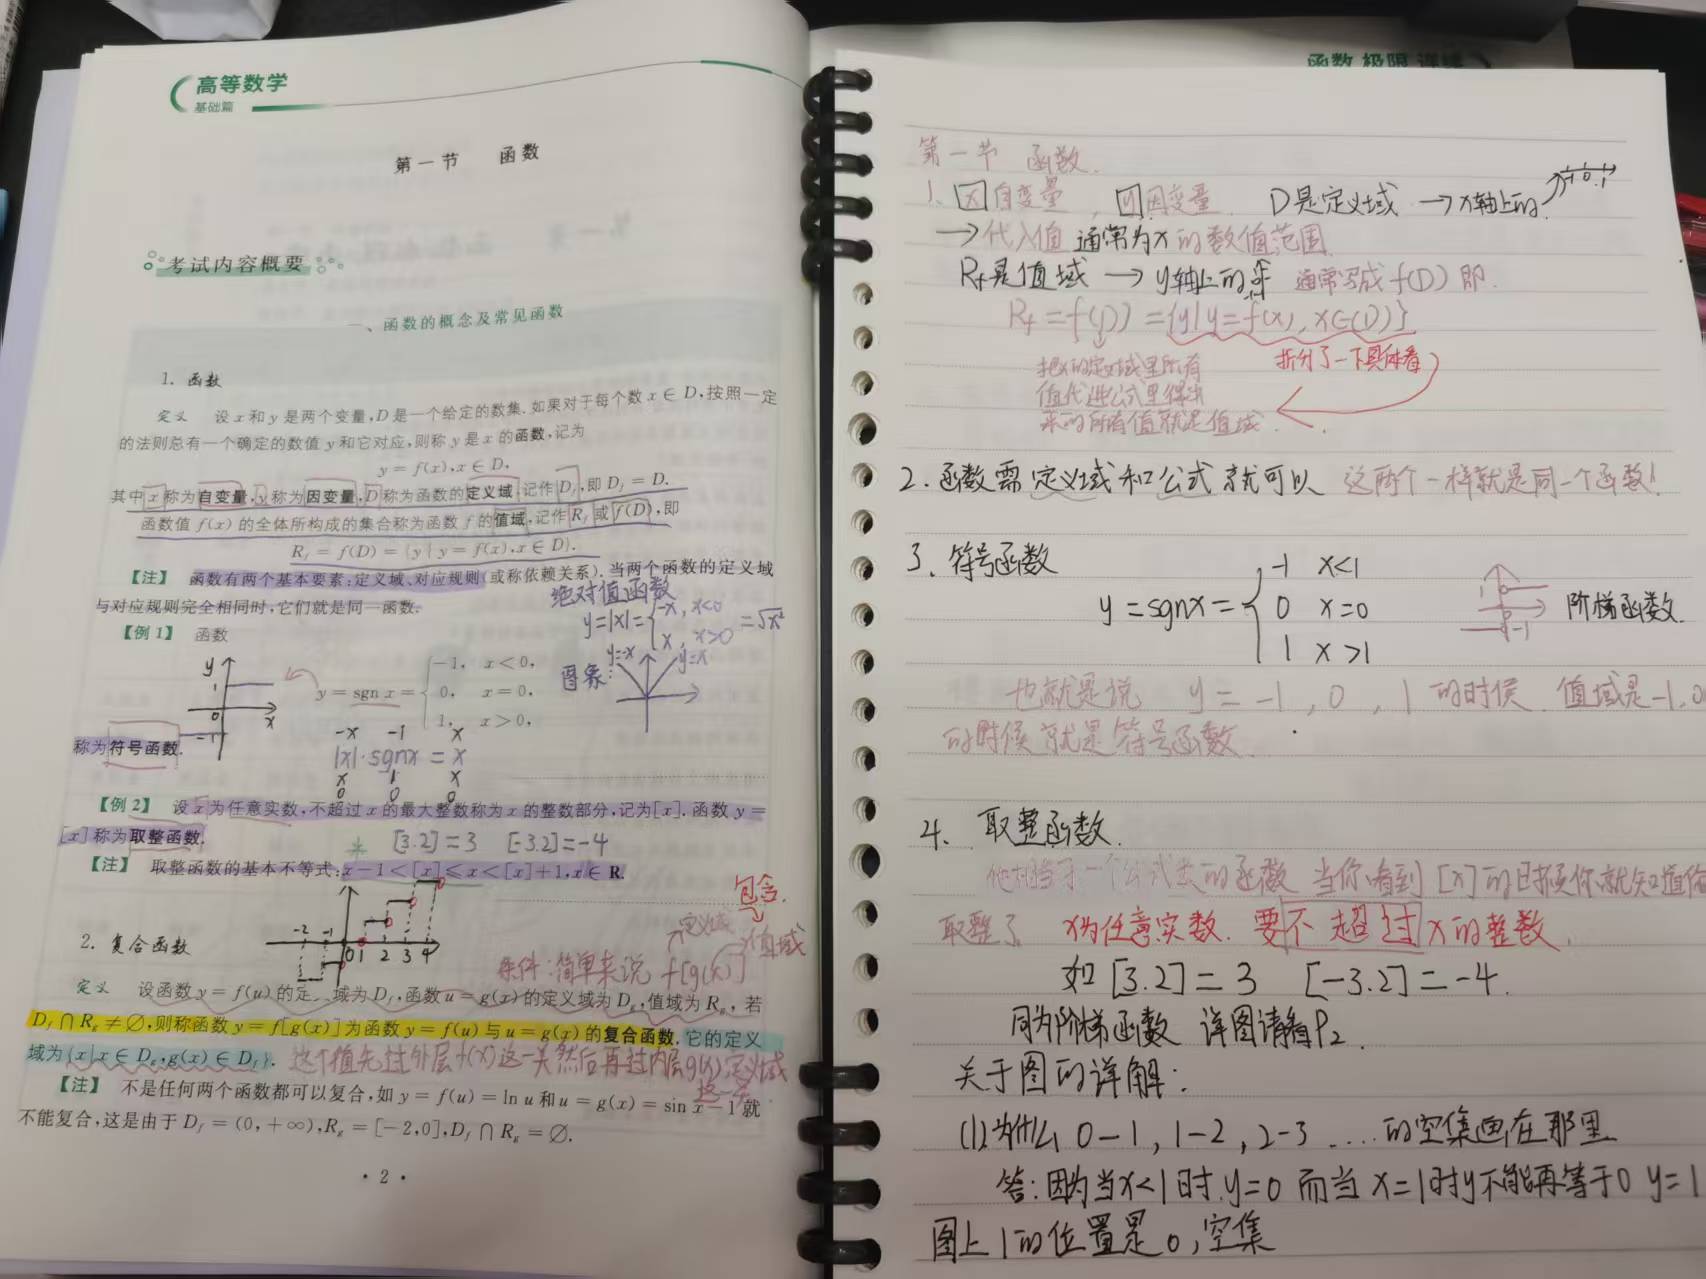 高等数学
基础篇
第一节 函数
考试内容概要
一、函数的概念及常见函数
1. 函数
定义 设 x 和 y 是两个变量,D 是一个给定的数集.如果对于每个数 x ∈ D,按照一定
的法则总有一个确定的数值 y 和它对应,则称 y 是 x 的函数,记为
y = f(x),x ∈ D.
其中 x 称为自变量,y 称为因变量,D 称为函数的定义域,记作 D_f,即 D_f = D.
函数值 f(x) 的全体所构成的集合称为函数 f 的值域,记作 R_f 或 f(D),即
R_f = f(D) = {y | y = f(x),x ∈ D}.
【注】 函数有两个基本要素:定义域、对应规则(或称依赖关系).当两个函数的定义域
与对应规则完全相同时,它们就是同一函数.
绝对值函数
y=|x|= { -x, x<0
x, x>0 =√x²
图象: y=-x y=x
【例 1】 函数
y
1
0 x
-1
y = sgn x = { -1, x < 0,
0, x = 0,
1, x > 0,
称为符号函数.
-x -1 x
|x|·sgnx = x
x 1 x
0 0 0
【例 2】 设 x 为任意实数,不超过 x 的最大整数称为 x 的整数部分,记为[x].函数 y =
[x] 称为取整函数.
[3.2]=3 [-3.2]=-4
【注】 取整函数的基本不等式:x − 1 < [x] ≤ x < [x] + 1,x ∈ R.
-2 -1 0 1 2 3 4
包含.
定义域
值域
2. 复合函数
条件:简单来说 f[g(x)]
定义 设函数 y = f(u) 的定 域为 D_f,函数 u = g(x) 的定义域为 D_g,值域为 R_g, 若
D_f ∩ R_g ≠ ∅,则称函数 y = f[g(x)] 为函数 y = f(u) 与 u = g(x) 的复合函数.它的定义
域为 {x | x ∈ D_g,g(x) ∈ D_f}.
这个值先过外层f(x)这一关然后再过内层g(x)定义域
这一关
【注】 不是任何两个函数都可以复合,如 y = f(u) = ln u 和 u = g(x) = sin x − 1 就
不能复合,这是由于 D_f = (0, + ∞),R_g = [− 2,0],D_f ∩ R_g = ∅.
· 2 ·
函数 极限 连续
第一节 函数.
1. x自变量, y因变量. D是定义域 → x轴上的
-1 0 1
→代入值 通常为x的数值范围
R_f是值域 → y轴上的 通常写成 f(D) 即.
R_f = f(D) = {y | y=f(x), x∈(D)}
把x的定义域里所有
值代进公式里得出
来的所有值就是值域.
拆分了一下具体看
2. 函数需定义域和公式就可以 这两个一样就是同一个函数!
3. 符号函数
y = sgnx = { -1 x<1
0 x=0
1 x>1
1
-1
阶梯函数.
也就是说 y = -1, 0, 1 的时候. 值域是-1,0
的时候就是符号函数.
4. 取整函数.
他相当于一个公式类的函数 当你看到[x]的时候你就知道
取整了 x为任意实数. 要不超过x的整数.
如 [3.2] = 3 [-3.2] = -4.
同为阶梯函数 详图请看P2.
关于图的详解:
(1).为什么 0-1, 1-2, 2-3 .... 的空集画在那里
答:因为当x<1时.y=0 而当 x=1时y不能再等于0 y=1
图上1的位置是0,空集